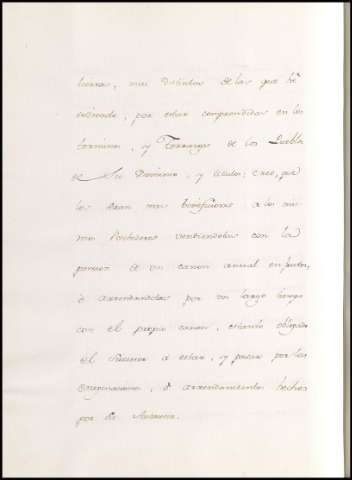 tierras, mui distintas de las que he
entrando, por estar comprendidas en los
terminos, y Terrazgos de los Pueblos
de Su Dominio, y titulos; creo, que
les seran mas beneficiosas a los mis
mos Poseedores vendiendolas con la
pension de un canon anual en frutos,
ó arrendandolas por un largo tiempo
con el propio canon, estando obligado
el Sucesor a estar, y pasar por las
enagenaciones, ó arrendamientos hechos
por Su Antecesor.